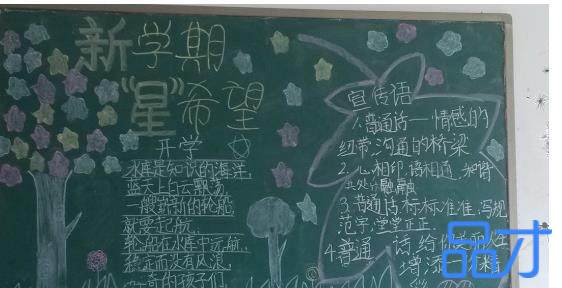 新学期
"星"希望
开学
水库是知识的海洋
蓝天上白云飘荡
一艘崭新的轮船
就要起航
轮船在水库中远航
稳走而没有风浪
奇的孩子们
宣传语
1.普通话一情感的
纽带,沟通的桥梁
2.心相印,语相通,和谐
共处 融融
3.普通话标标准准,写规
范字堂堂正正
4.普通话,给你 人生
增添 精
彩
品才